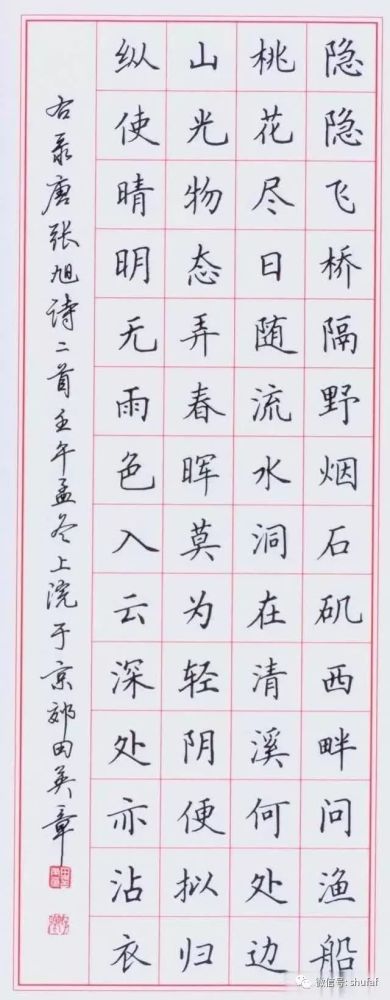 隐隐飞桥隔野烟石矶西畔问渔船
桃花尽日随流水洞在清溪何处边
山光物态弄春晖莫为轻阴便拟归
纵使晴明无雨色入云深处亦沾衣
右录唐张旭诗二首壬午孟冬上浣于京郊田英章
微信号: shufaf